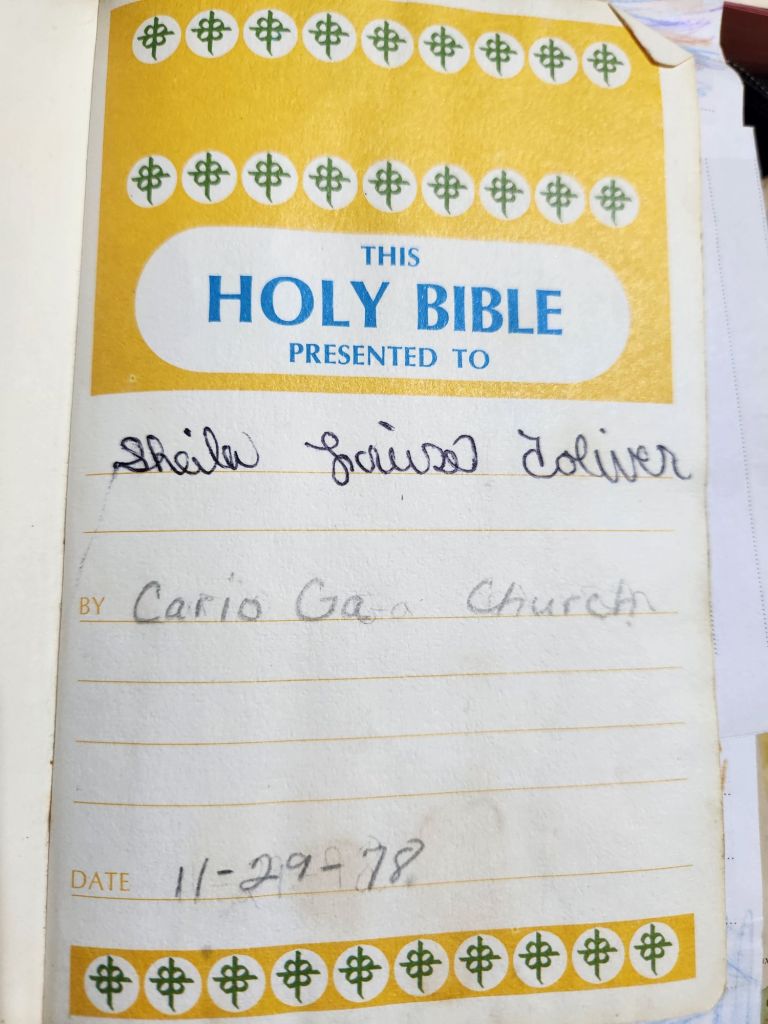 THIS
HOLY BIBLE
PRESENTED TO
Sheila Louise Toliver
BY Cario Ga Church
DATE 11-29-78